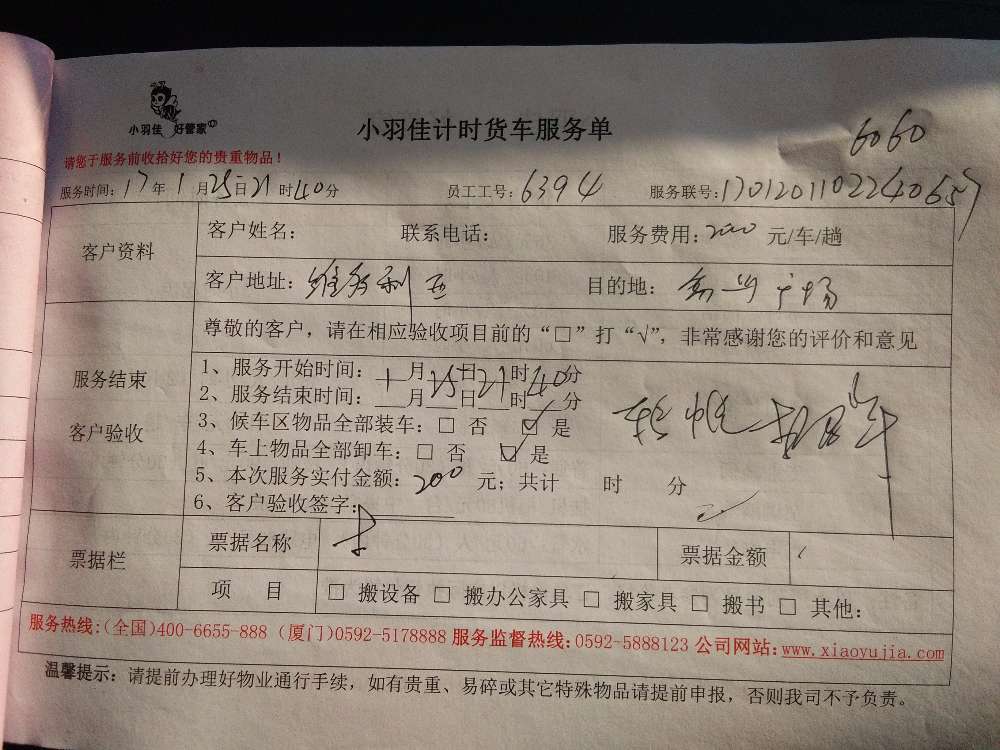 小羽佳 好管家
小羽佳计时货车服务单
6060
请您于服务前收拾好您的贵重物品！
服务时间：17年1月25日21时40分 员工工号：6394 服务联号：17012011022440657
客户资料
客户姓名： 联系电话： 服务费用：200 元/车/趟
客户地址：维多利亚 目的地： 广场
服务结束
客户验收
尊敬的客户，请在相应验收项目前的“□”打“√”，非常感谢您的评价和意见
1、服务开始时间：1月25日21时40分
2、服务结束时间：___月___日___时___分
3、候车区物品全部装车：□ 否 ☑ 是
4、车上物品全部卸车：□ 否 ☑ 是
5、本次服务实付金额：200 元；共计 时 分
6、客户验收签字：
票据栏
票据名称
票据金额
项 目
□ 搬设备 □ 搬办公家具 □ 搬家具 □ 搬书 □ 其他：
服务热线：(全国)400-6655-888 (厦门)0592-5178888 服务监督热线：0592-5888123 公司网站：www.xiaoyujia.com
温馨提示：请提前办理好物业通行手续，如有贵重、易碎或其它特殊物品请提前申报，否则我司不予负责。